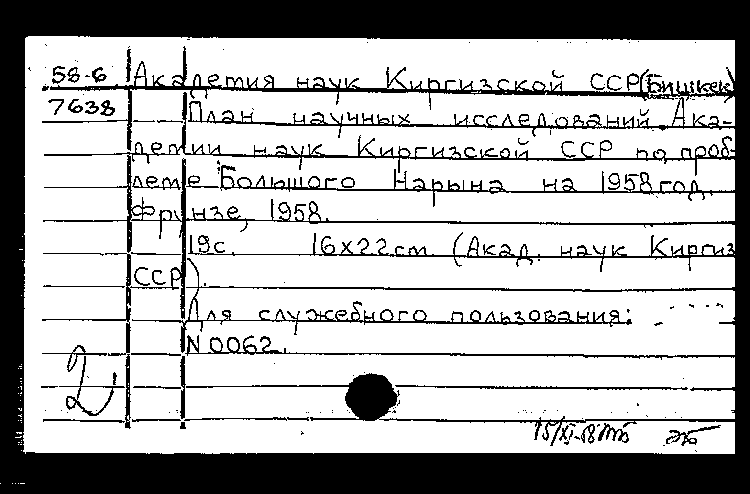 58-6 Академия наук Киргизской ССР(Бишкек)
7638 План научных исследований Ака-
демии наук Киргизской ССР по проб-
леме Большого Нарына на 1958 год.
Фрунзе, 1958.
19с. 16х22см. (Акад. наук Киргиз
ССР).
Для служебного пользования:
N 0062.
2